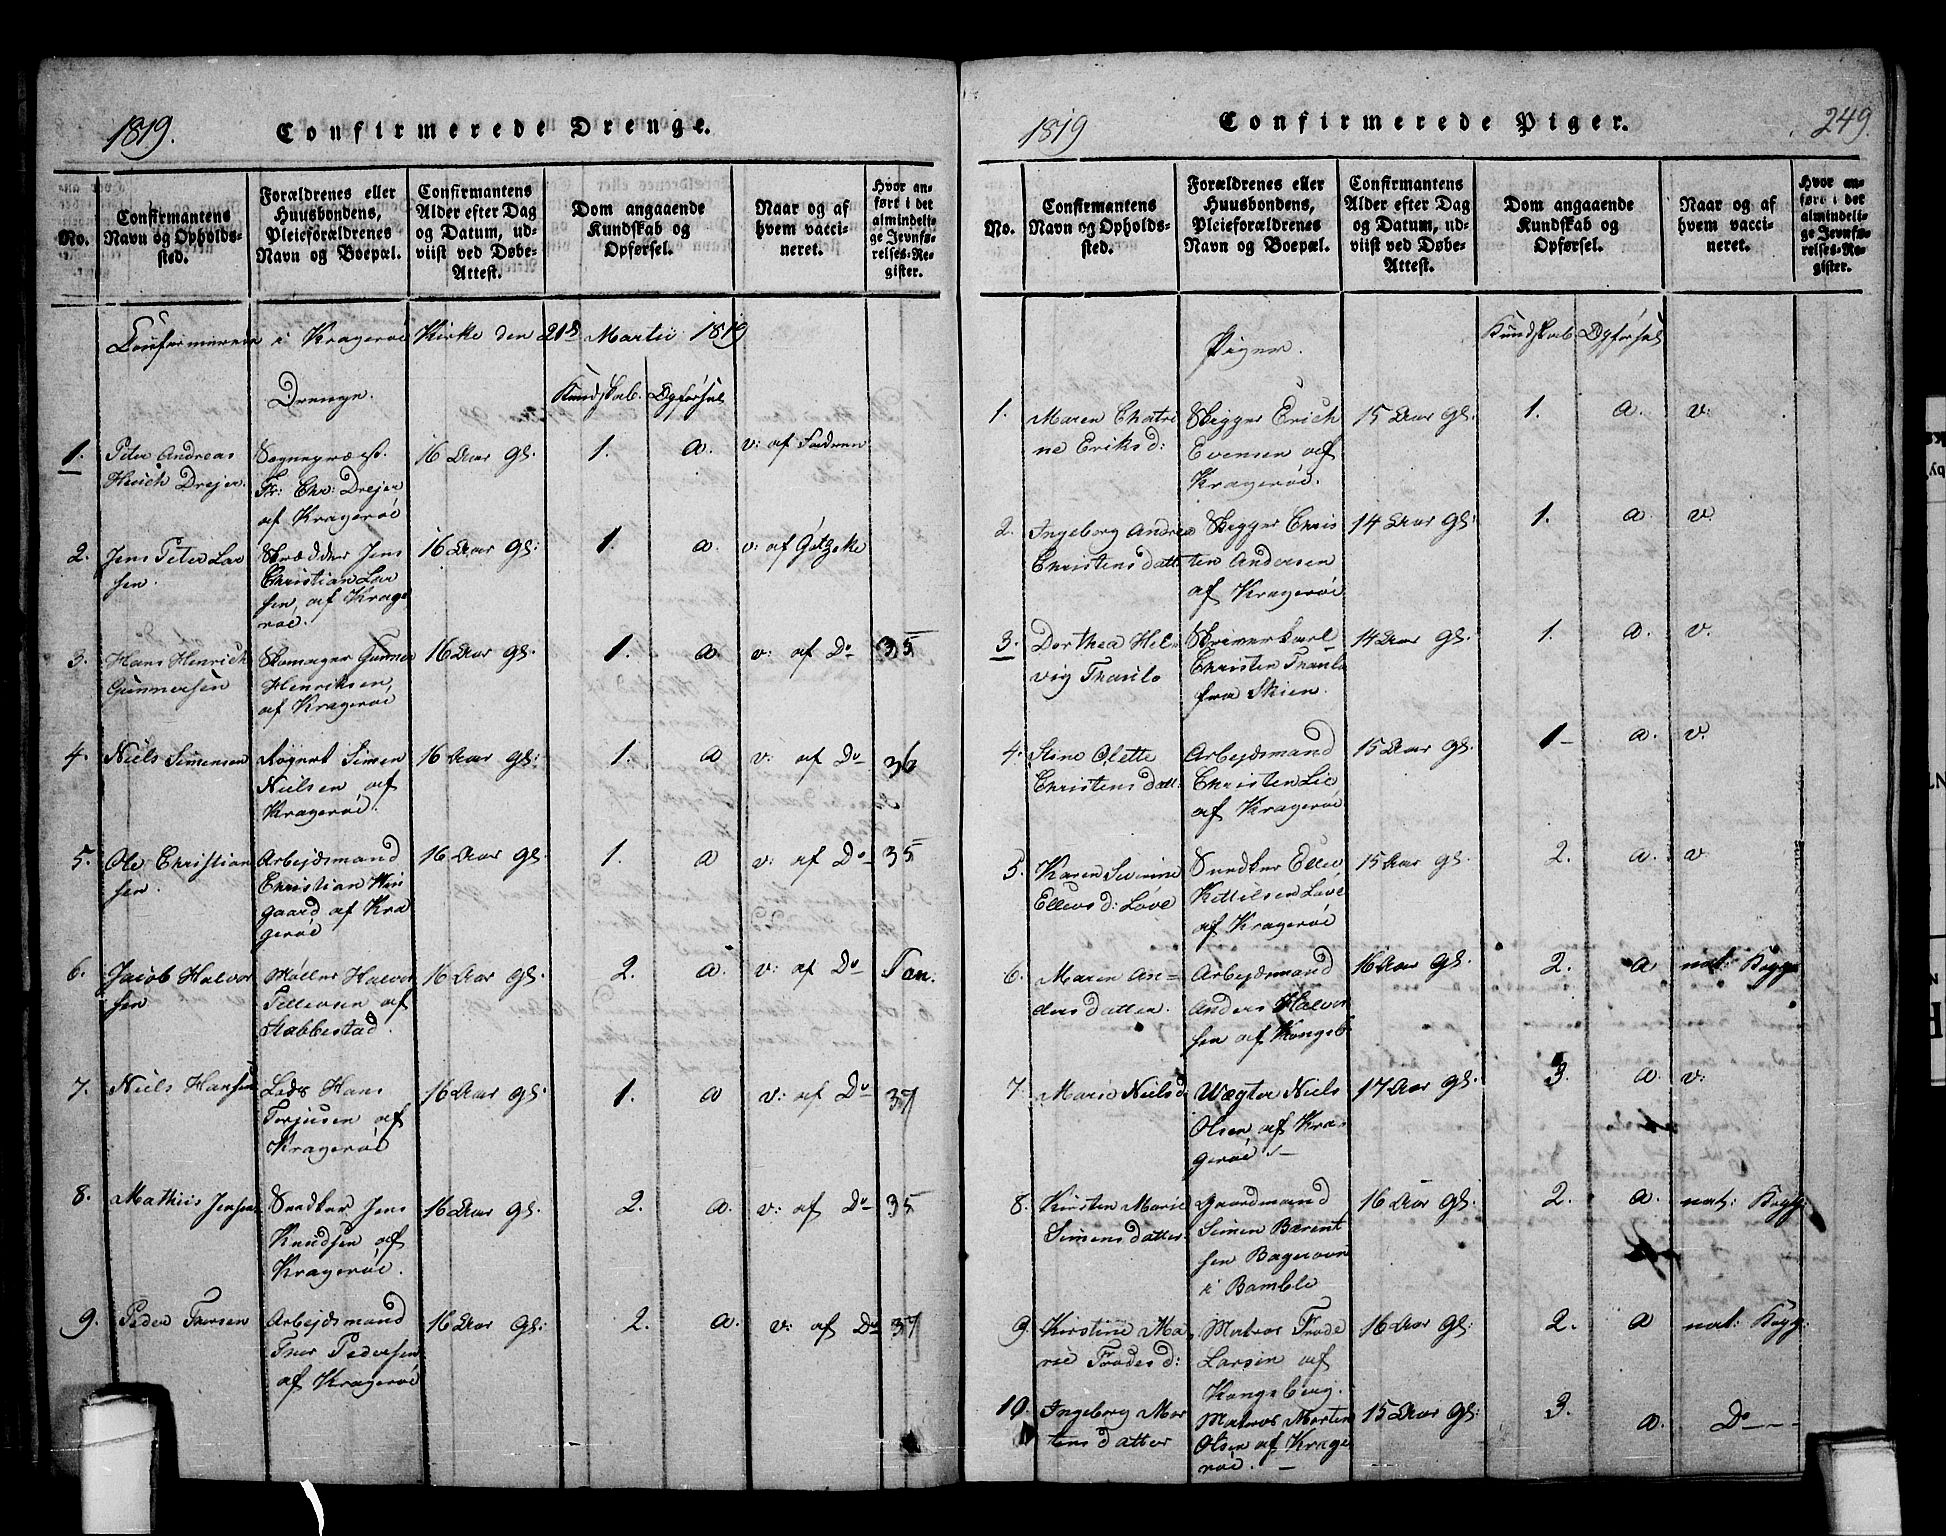 1819.
Confirmerede Drenge.
No.
Confirmantens
Navn og Opholds-
sted.
Forældrenes eller
Huusbondens,
Pleieforældrenes
Navn og Boepæl.
Confirmantens
Alder efter Dag
og Datum, ud-
viist ved Døbe-
Attest.
Dom angaaende
Kundskab og
Opførsel.
Naar og af
hvem vacci-
neret.
Hvor an-
ført i det
almindeli-
ge Jevnfø-
relses-Re-
gister.
i Kragerøe Kirke den 21de Martii 1819
Drenge.
Kundskab. Opførsel
1. Peter Andreas
Hinich Drejer.
Sognepræst.
Fr: Chr: Drejer
af Kragerøe
16 Aar gl. 1. a. v: af Faderen
2. Jens Peter Lar
sen.
Skrædder Jens
Christian Lar
sen, af Krage
røe.
16 Aar gl: 1. a. v: af Götzske
3. Hans Henrich
Gunnersen
Skomager Gunner
Henriksen,
af Kragerøe
16 Aar gl. 1. a v: af Do 35
4. Niels Simensen
Simen
Nielsen af
Kragerøe.
16 Aar gl: 1. a v: af Do 36
5. Ole Christian
sen.
Arbejdsmand
Christian Win
gaard af Kra
gerøe
16 Aar gl. 1. a v: af Do 35
6. Jacob Halvor
sen
Møller Halvor
Tellevsen af
Stabbestad.
16 Aar gl. 2. a. v: af Do Tan.
7. Niels Hansen
Lods Hans
Terjusen af
Kragerøe
16 Aar gl. 1. a v: af Do 37
8. Mathias Jensen
Snedker Jens
Knudsen af
Kragerøe.
16 Aar gl. 2. a. v: af Do 35
9. Peder Thorsen
Arbejdsmand
Thor Pedersen
af Kragerøe
16 Aar gl: 2. a. v: af Do 37
1819
Confirmerede Piger.
249.
No.
Confirmantens
Navn og Opholds-
sted.
Forældrenes eller
Huusbondens,
Pleieforældrenes
Navn og Boepæl.
Confirmantens
Alder efter Dag
og Datum, ud-
viist ved Døbe-
Attest.
Dom angaaende
Kundskab og
Opførsel.
Naar og af
hvem vacci-
neret.
Hvor an-
ført i det
almindeli-
ge Jevnfø-
relses-Re-
gister.
Piger.
Kundskab. Opførsel
1. Maren Chatri
ne Eriksd:
Skipper Erich
Evensen af
Kragerøe.
15 Aar gl: 1. a. v:
2. Ingeborg Andrea
Christensdatt
Skipper Chris
ten Andersen
af Kragerøe
14 Aar gl: 1. a v.
3. Dorthea Hel-
vig Thaulo
Skriverkarl
Christen Thaulo
fra Skien.
14 Aar gl: 1. a. v.
4. Stine Olette
Christensdatt.
Arbejdsmand
Christen Lie
af Kragerøe
15 Aar gl: 1- a. v.
5. Karen Severine
Ellevsd: Løve
Snedker Ellev
Kittilsen Løve
af Kragerøe
15 Aar gl. 2. a. v
6. Maren An-
dersdatter.
Arbejdsmand
Anders Halvor
sen af Kongsb.
16 Aar gl. 2. a nat: Kopp.
7. Marie Nielsd
Vægter Niels
Olsen af Kra-
gerøe.-
17 Aar gl. 3. a. v:
8. Kirsten Marie
Simensdatter.
Gaardmand
Simen Bærent
sen
i Bamble
16 Aar gl. 2. a. nat: Kopp.
9. Kirstine Ma
rie Frodesd:
Matros Frode
Larsen af
Kongsberg.
16 Aar gl: 2. a nat: Kopp:
10. Ingeborg Mor
tensdatter
Matros Morten
Olsen af Krage
røe. -
15 Aar gl: 3. a. Do - -